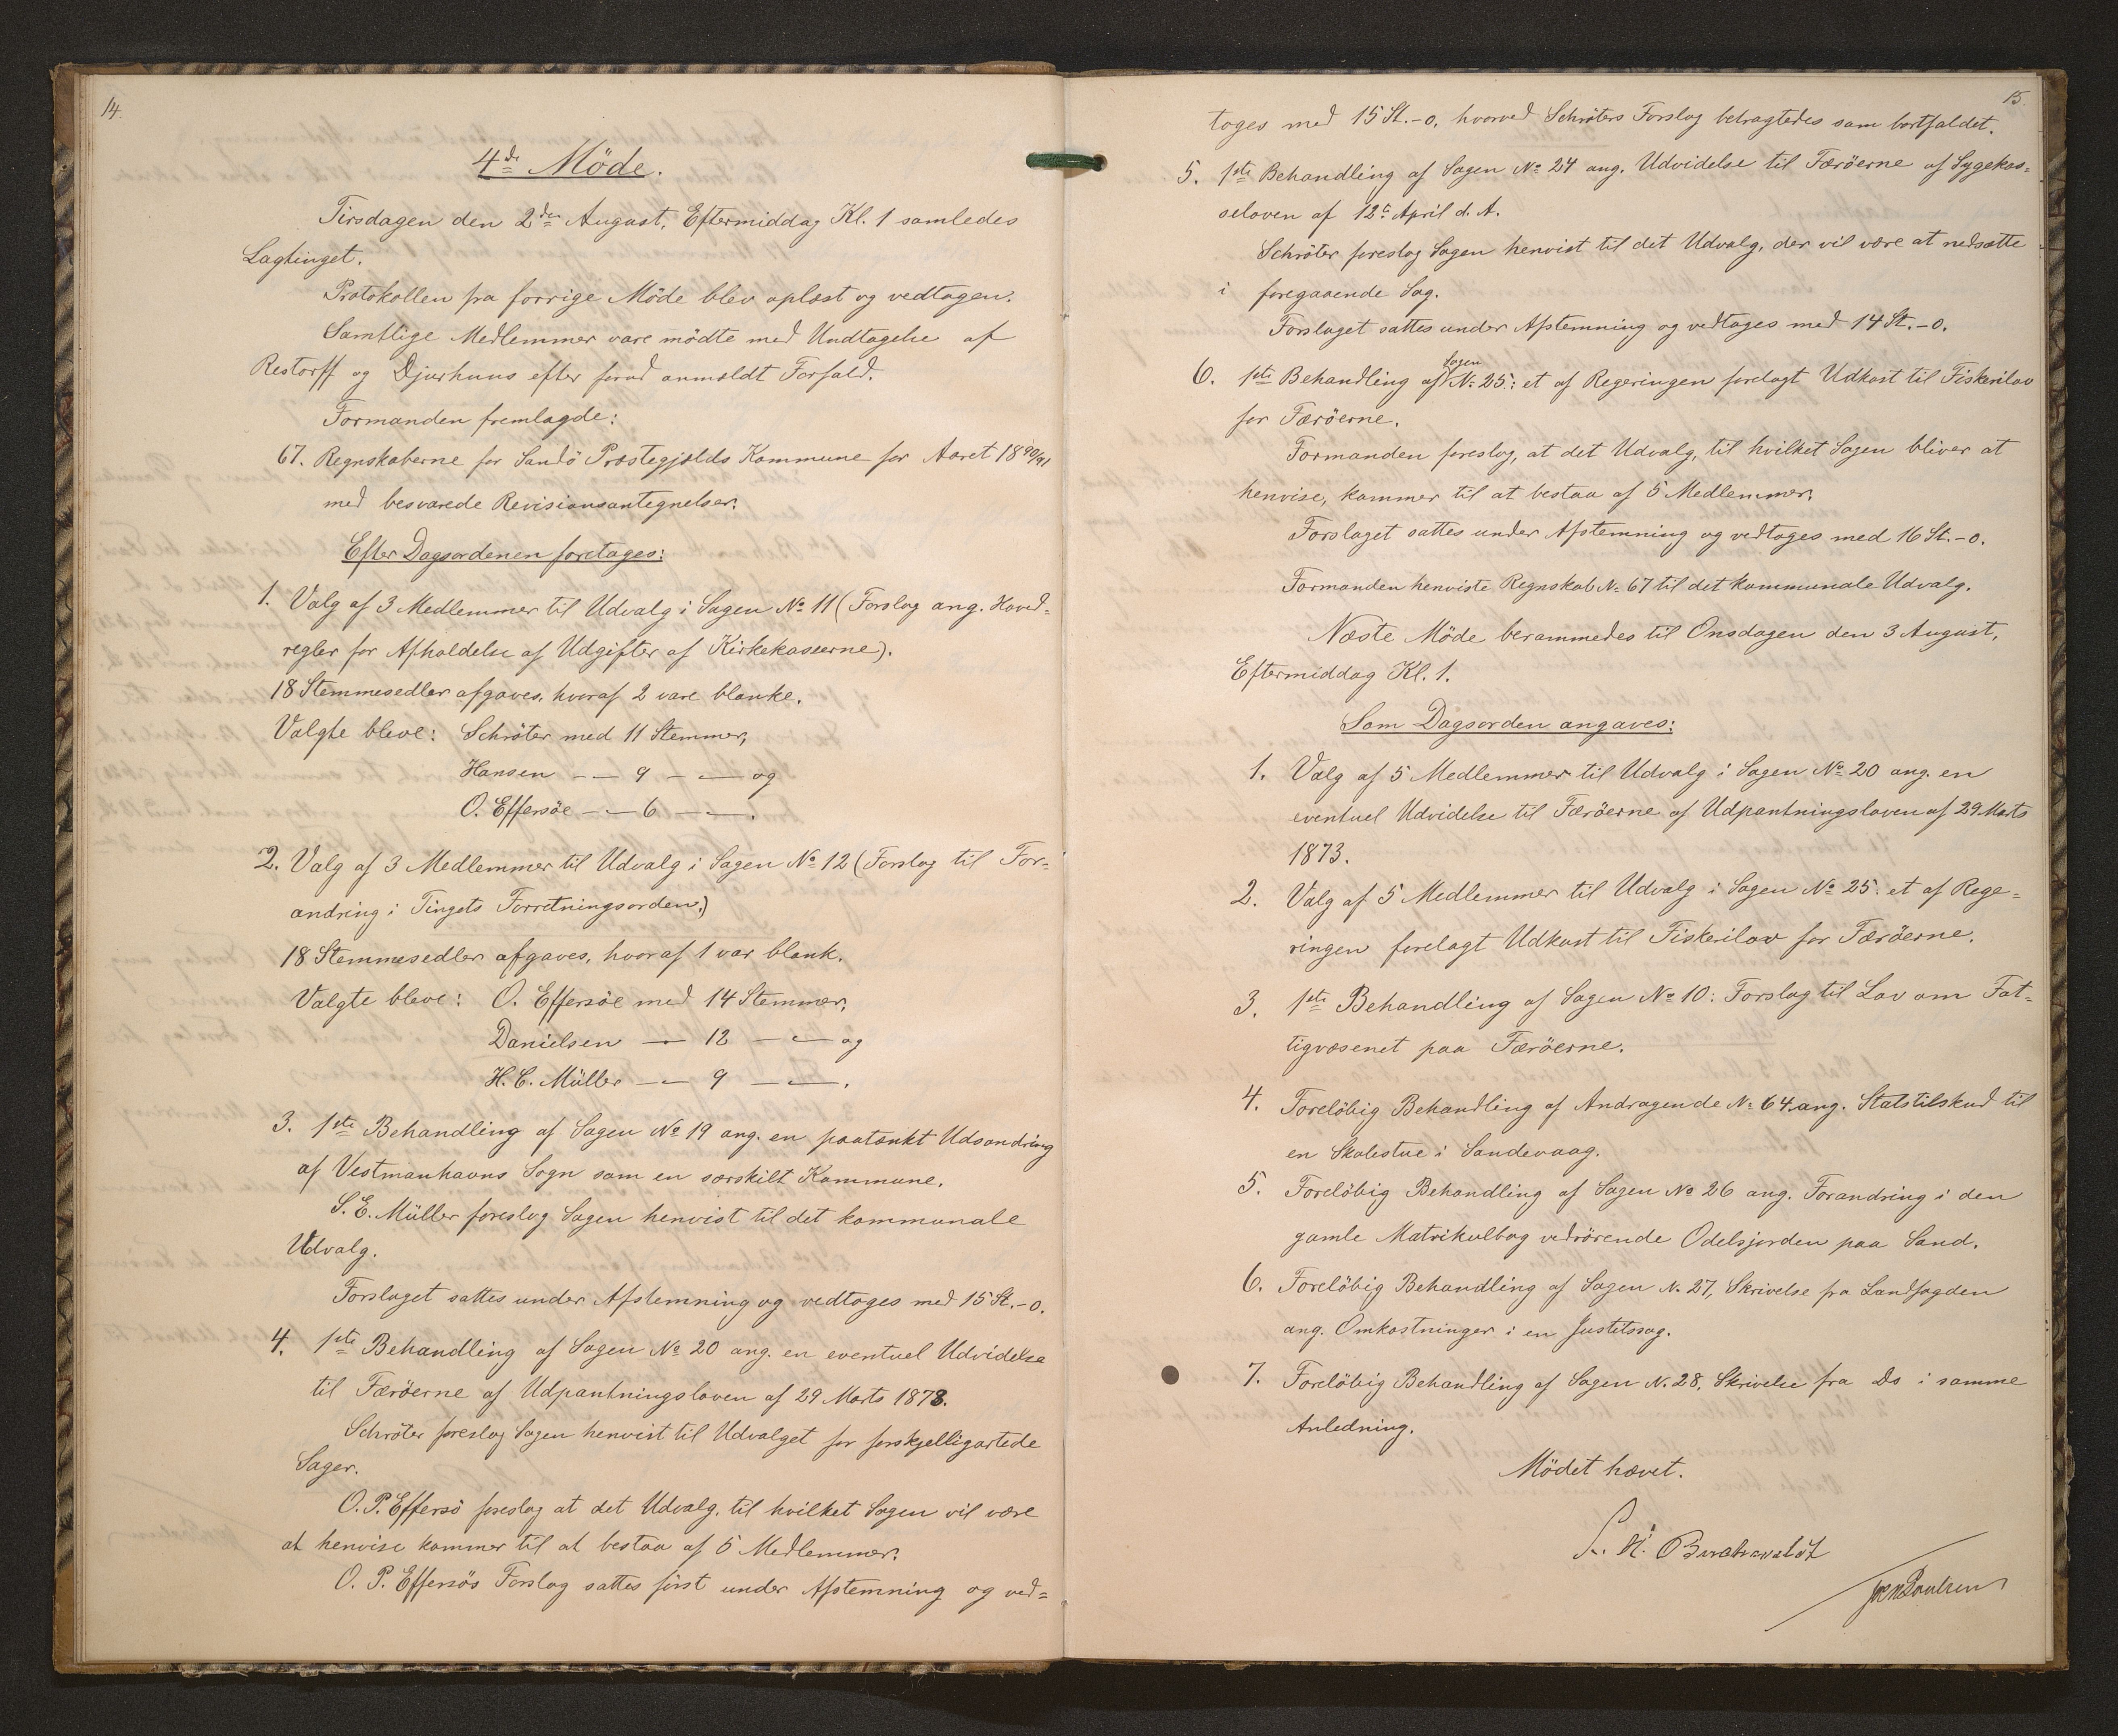 14.
4de Möde.
Tirsdagen den 2den August, Eftermiddag Kl. 1 samledes
Lagtinget.
Protokollen fra forrige Möde blev oplæst og vedtagen.
Samtlige Medlemmer vare mödte med Undtagelse af
Restorff og Djurhuus efter forud anmeldt Forfald.
Formanden fremlagde:
67. Regnskaberne for Sandö Præstegjælds Kommune for Aaret 1890/91
med besvarede Revisionsantegnelser.
Efter Dagsordenen foretoges:
1. Valg af 3 Medlemmer til Udvalg i Sagen No 11 (Forslag ang. Hoved=
regler for Afholdelse af Udgifter af Kirkekasserne).
18 Stemmesedler afgaves, hvoraf 2 vare blanke.
Valgte bleve: Schröter med 11 Stemmer,
Hansen — — 9 — — og
O. Effersöe — — 6 — — .
2. Valg af 3 Medlemmer til Udvalg i Sagen No 12 (Forslag til For=
andring i Tingets Forretningsorden.)
18 Stemmesedler afgaves, hvoraf 1 var blank.
Valgte bleve: O. Effersöe med 14 Stemmer,
Danielsen — 12 — — og
H. C. Müller — — 9 — — .
3. 1ste Behandling af Sagen No 19 ang. en paatænkt Udsondring
af Vestmanhavns Sogn som en særskilt Kommune.
S. E. Müller foreslog Sagen henvist til det kommunale
Udvalg.
Forslaget sattes under Afstemning og vedtoges med 15 St. - 0.
4. 1ste Behandling af Sagen No 20 ang. en eventuel Udvidelse
til Færöerne af Udpantningsloven af 29 Marts 1873.
Schröter foreslog Sagen henvist til Udvalget for forskjelligartede
Sager.
O. P. Effersö foreslog at det Udvalg, til hvilket Sagen vil være
at henvise kommer til at bestaa af 5 Medlemmer.
O. P. Effersös Forslag sattes först under Afstemning og ved=
15.
toges med 15 St. - 0, hvorved Schröters Forslag betragtedes som bortfaldet.
5. 1ste Behandling af Sagen No 24 ang. Udvidelse til Færöerne af Sygekas=
seloven af 12te April d. A.
Schröter foreslog Sagen henvist til det Udvalg, der vil være at nedsætte
i foregaaende Sag.
Forslaget sattes under Afstemning og vedtoges med 14 St. - 0.
6. 1ste Behandling af Sagen No 25: et af Regeringen forelagt Udkast til Fiskerilov
for Færöerne.
Formanden foreslog, at det Udvalg, til hvilket Sagen bliver at
henvise, kommer til at bestaa af 5 Medlemmer.
Forslaget sattes under Afstemning og vedtoges med 16 St. - 0.
Formanden henviste Regnskab No 67 til det kommunale Udvalg.
Næste Möde berammedes til Onsdagen den 3 August,
Eftermiddag Kl. 1.
Som Dagsorden angaves:
1. Valg af 5 Medlemmer til Udvalg i Sagen No 20 ang. en
eventuel Udvidelse til Færöerne af Udpantningsloven af 29 Marts
1873.
2. Valg af 5 Medlemmer til Udvalg i Sagen No 25: et af Rege=
ringen forelagt Udkast til Fiskerilov for Færöerne.
3. 1ste Behandling af Sagen No 10: Forslag til Lov om Fat=
tigvæsenet paa Færöerne.
4. Foreløbig Behandling af Andragende No 64 ang. Statstilskud til
en Skolestue i Sandevaag.
5. Forelöbig Behandling af Sagen No 26 ang. Forandring i den
gamle Matrikulbog vedrörende Odelsjorden paa Sand.
6. Forelöbig Behandling af Sagen N. 27, Skrivelse fra Landfogden
ang. Omkostninger i en Justitssag.
7. Forelöbig Behandling af Sagen N. 28, Skrivelse fra Do i samme
Anledning.
Mödet hævet.